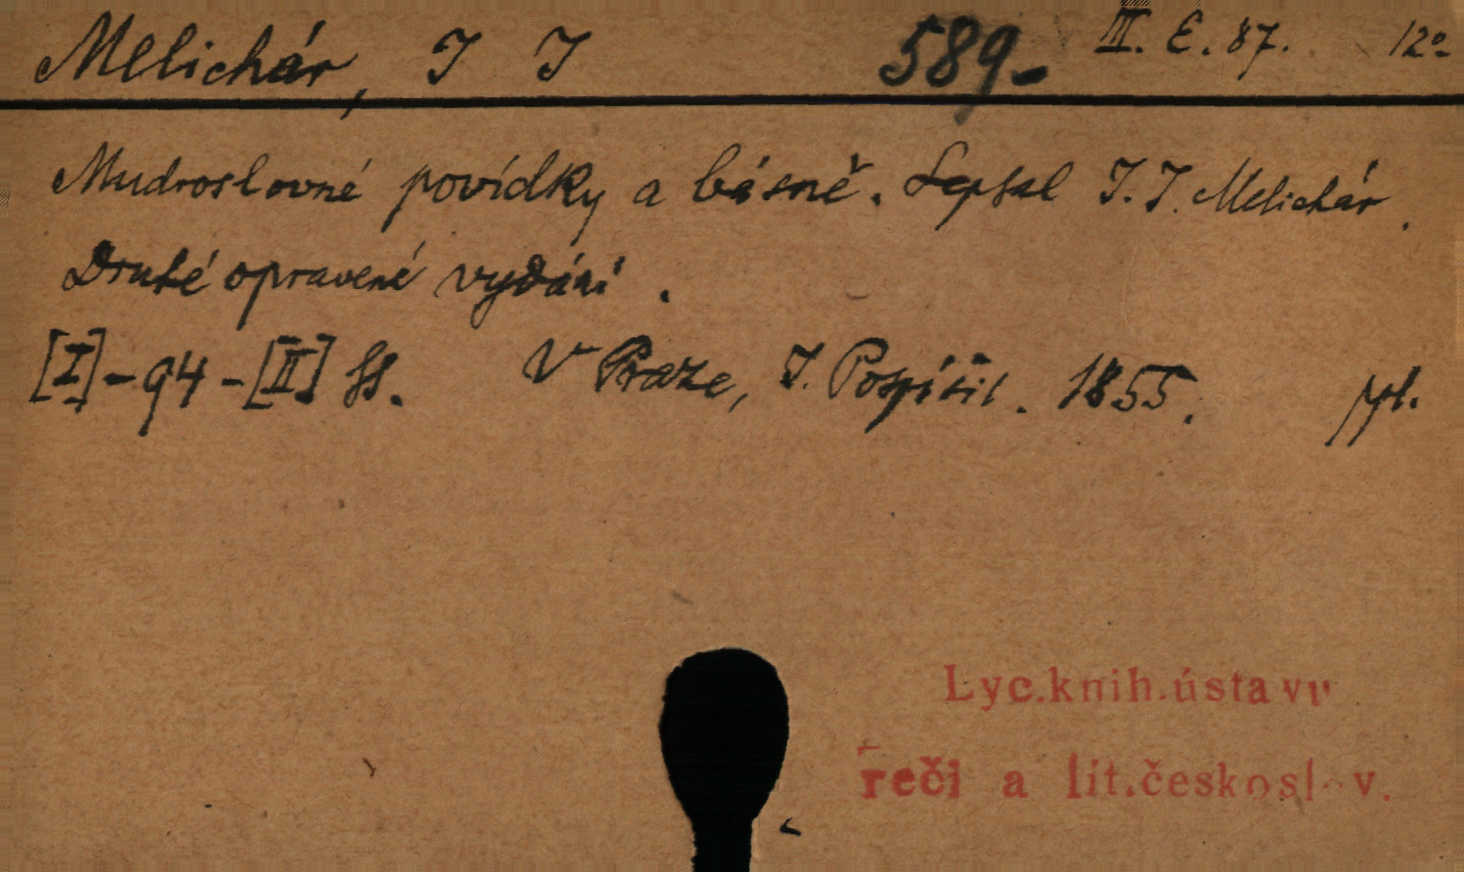 Melichár, J J 589- III. E. 87. 12°
Mudroslovné povídky a básně. Sepsal J. J. Melichár.
Druhé opravené vydání.
[I]-94-[II] ss. V Praze, J. Pospíšil. 1855. ppl.
Lyc.knih.ústavu
řeči a lit.českoslov.